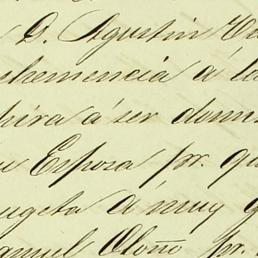 D. Agustin
ehemencia á la
pira á ser domi
u Esposa pr. qu
ugeta á muy
anuel Otoño pr.